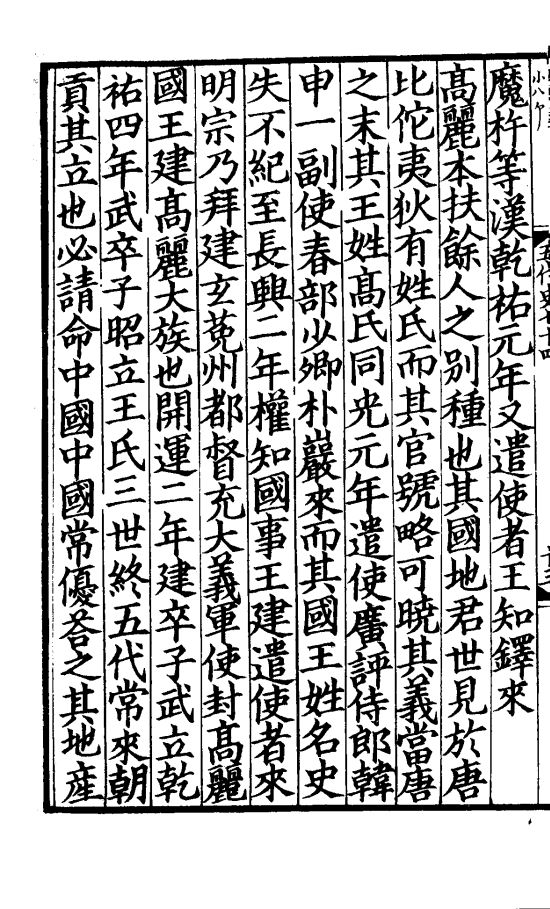 魔杵等漢乾祐元年又遣使者王知鐸來
高麗本扶餘人之別種也其國地君世見於唐
比佗夷狄有姓氏而其官號略可曉其義當唐
之末其王姓高氏同光元年遣使廣評侍郎韓
申一副使春部少卿朴巖來而其國王姓名史
失不紀至長興二年權知國事王建遣使者來
明宗乃拜建玄菟州都督充大義軍使封高麗
國王建高麗大族也開運二年建卒子武立乾
祐四年武卒子昭立王氏三世終五代常來朝
貢其立也必請命中國中國常優荅之其地產